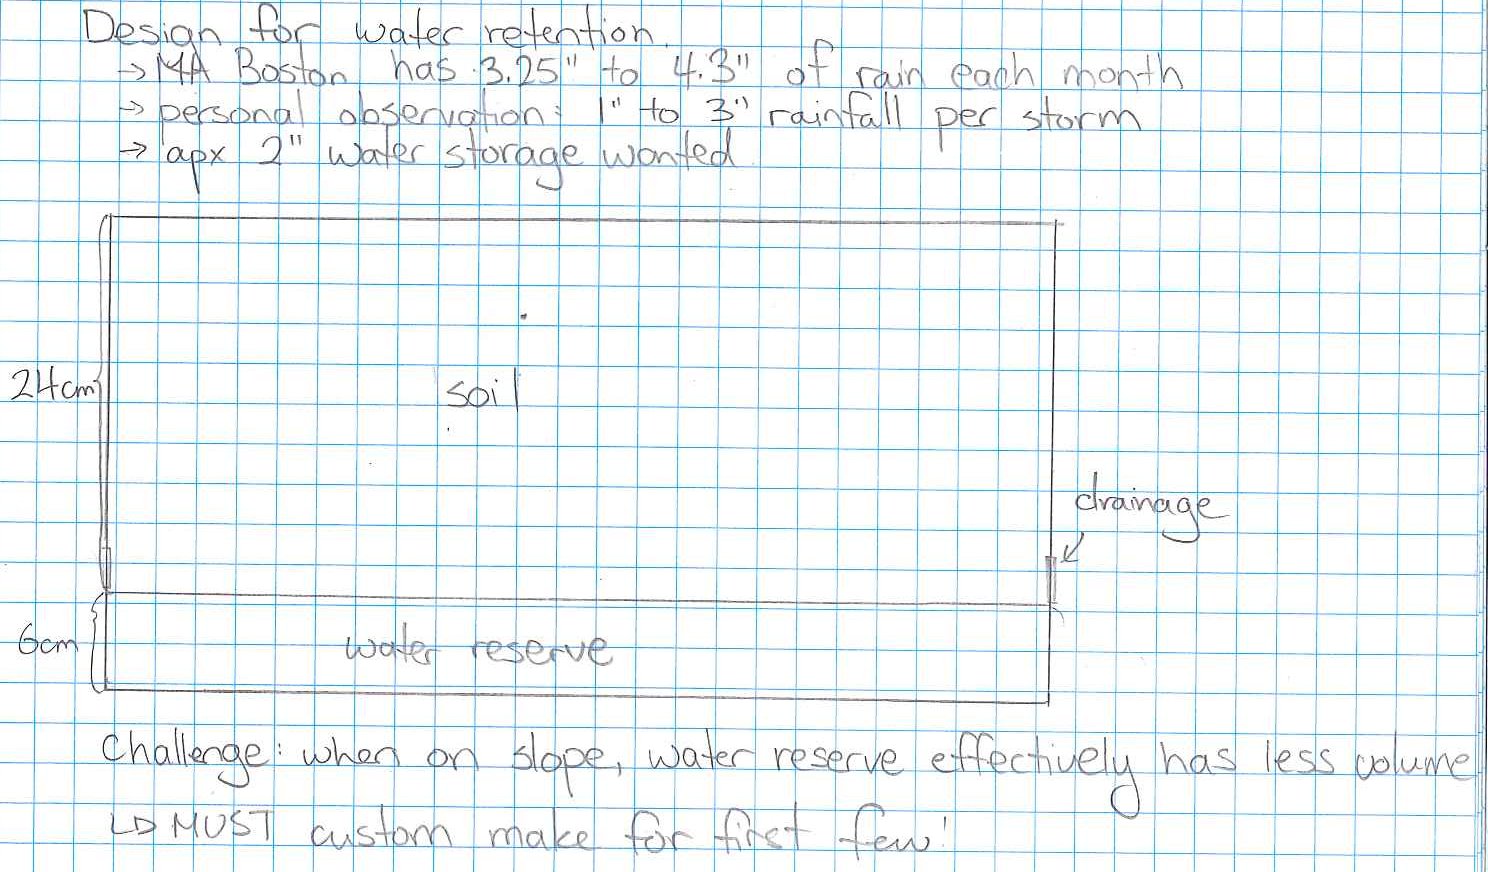 Design for water retention.
→ MA Boston has 3.25" to 4.3" of rain each month
→ personal observation: 1" to 3" rainfall per storm
→ apx 2" water storage wanted
24cm
soil
drainage
6cm
water reserve
Challenge: when on slope, water reserve effectively has less volume
↳ MUST custom make for first few!